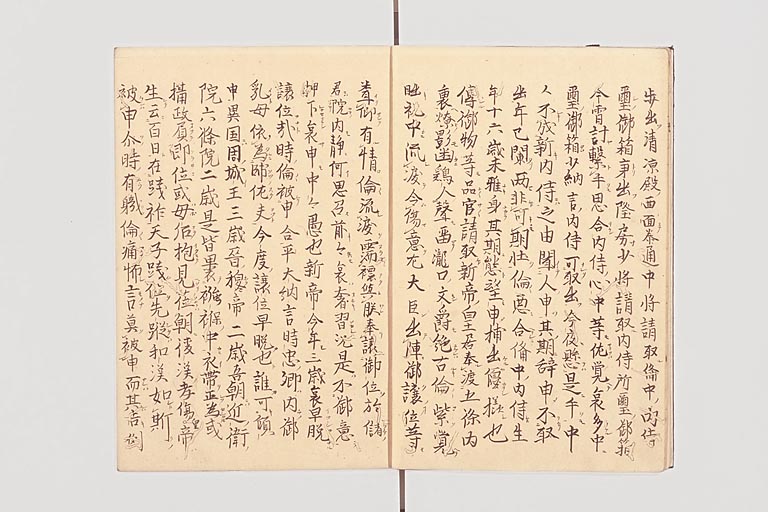 歩出清涼殿西面参通中将請取備中内侍
璽御箱事出陸房少将請取内侍所璽御箱
今宵計繋手思合内侍心中等侘覚哀多中
璽御箱少納言内侍可取出今夜懸是手中
人不成新内侍之由聞人申其期辞申不取
出年已闌両非可期壮倫悪合備中内侍生
年十六歳未雅身其期態望申捕出優様也
傳御物等品官請取新帝皇居奉渡土條内
裏燎影幽鶏人聲留瀧口文爵絶古倫紫賞
眦祝中流涙今傷意左大臣出陣御譲位等
着仰有情倫流涙濡襟與朕奉譲御位於儲
君院内静何思召前々哀奢習況是不御意
押下哀申中々愚也新帝今年三歳哀早脱
譲位哉時倫被申合平大納言時忠卿内御
乳母依為帥侘夫今度譲位早脱也誰可傾
申異国周城王三歳晉穆帝二歳吾朝近衛
院六條院二歳是皆裹襁褓中衣帯正為或
攝政負即位或母后抱見位朝後漢孝傷帝
生云百日在践祚天子践位先蹤和漢如斯
被申介時有職倫痛怖言莫被申而其吉例